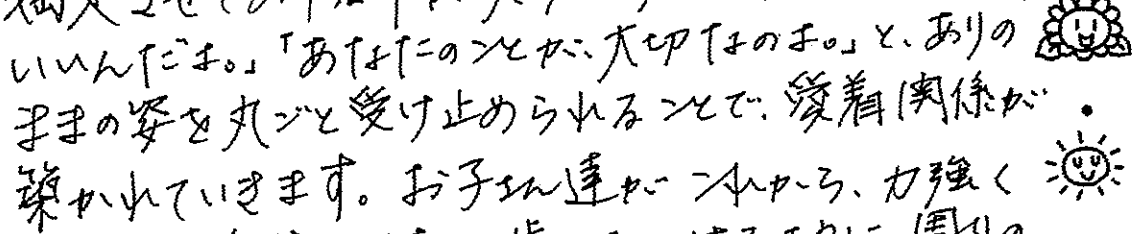 いいんだよ。」「あなたのことが、大切なのよ。」と、ありの
ままの姿を丸ごと受け止められることで、愛着関係が
築かれていきます。お子さん達がこれから、力強く
周りの